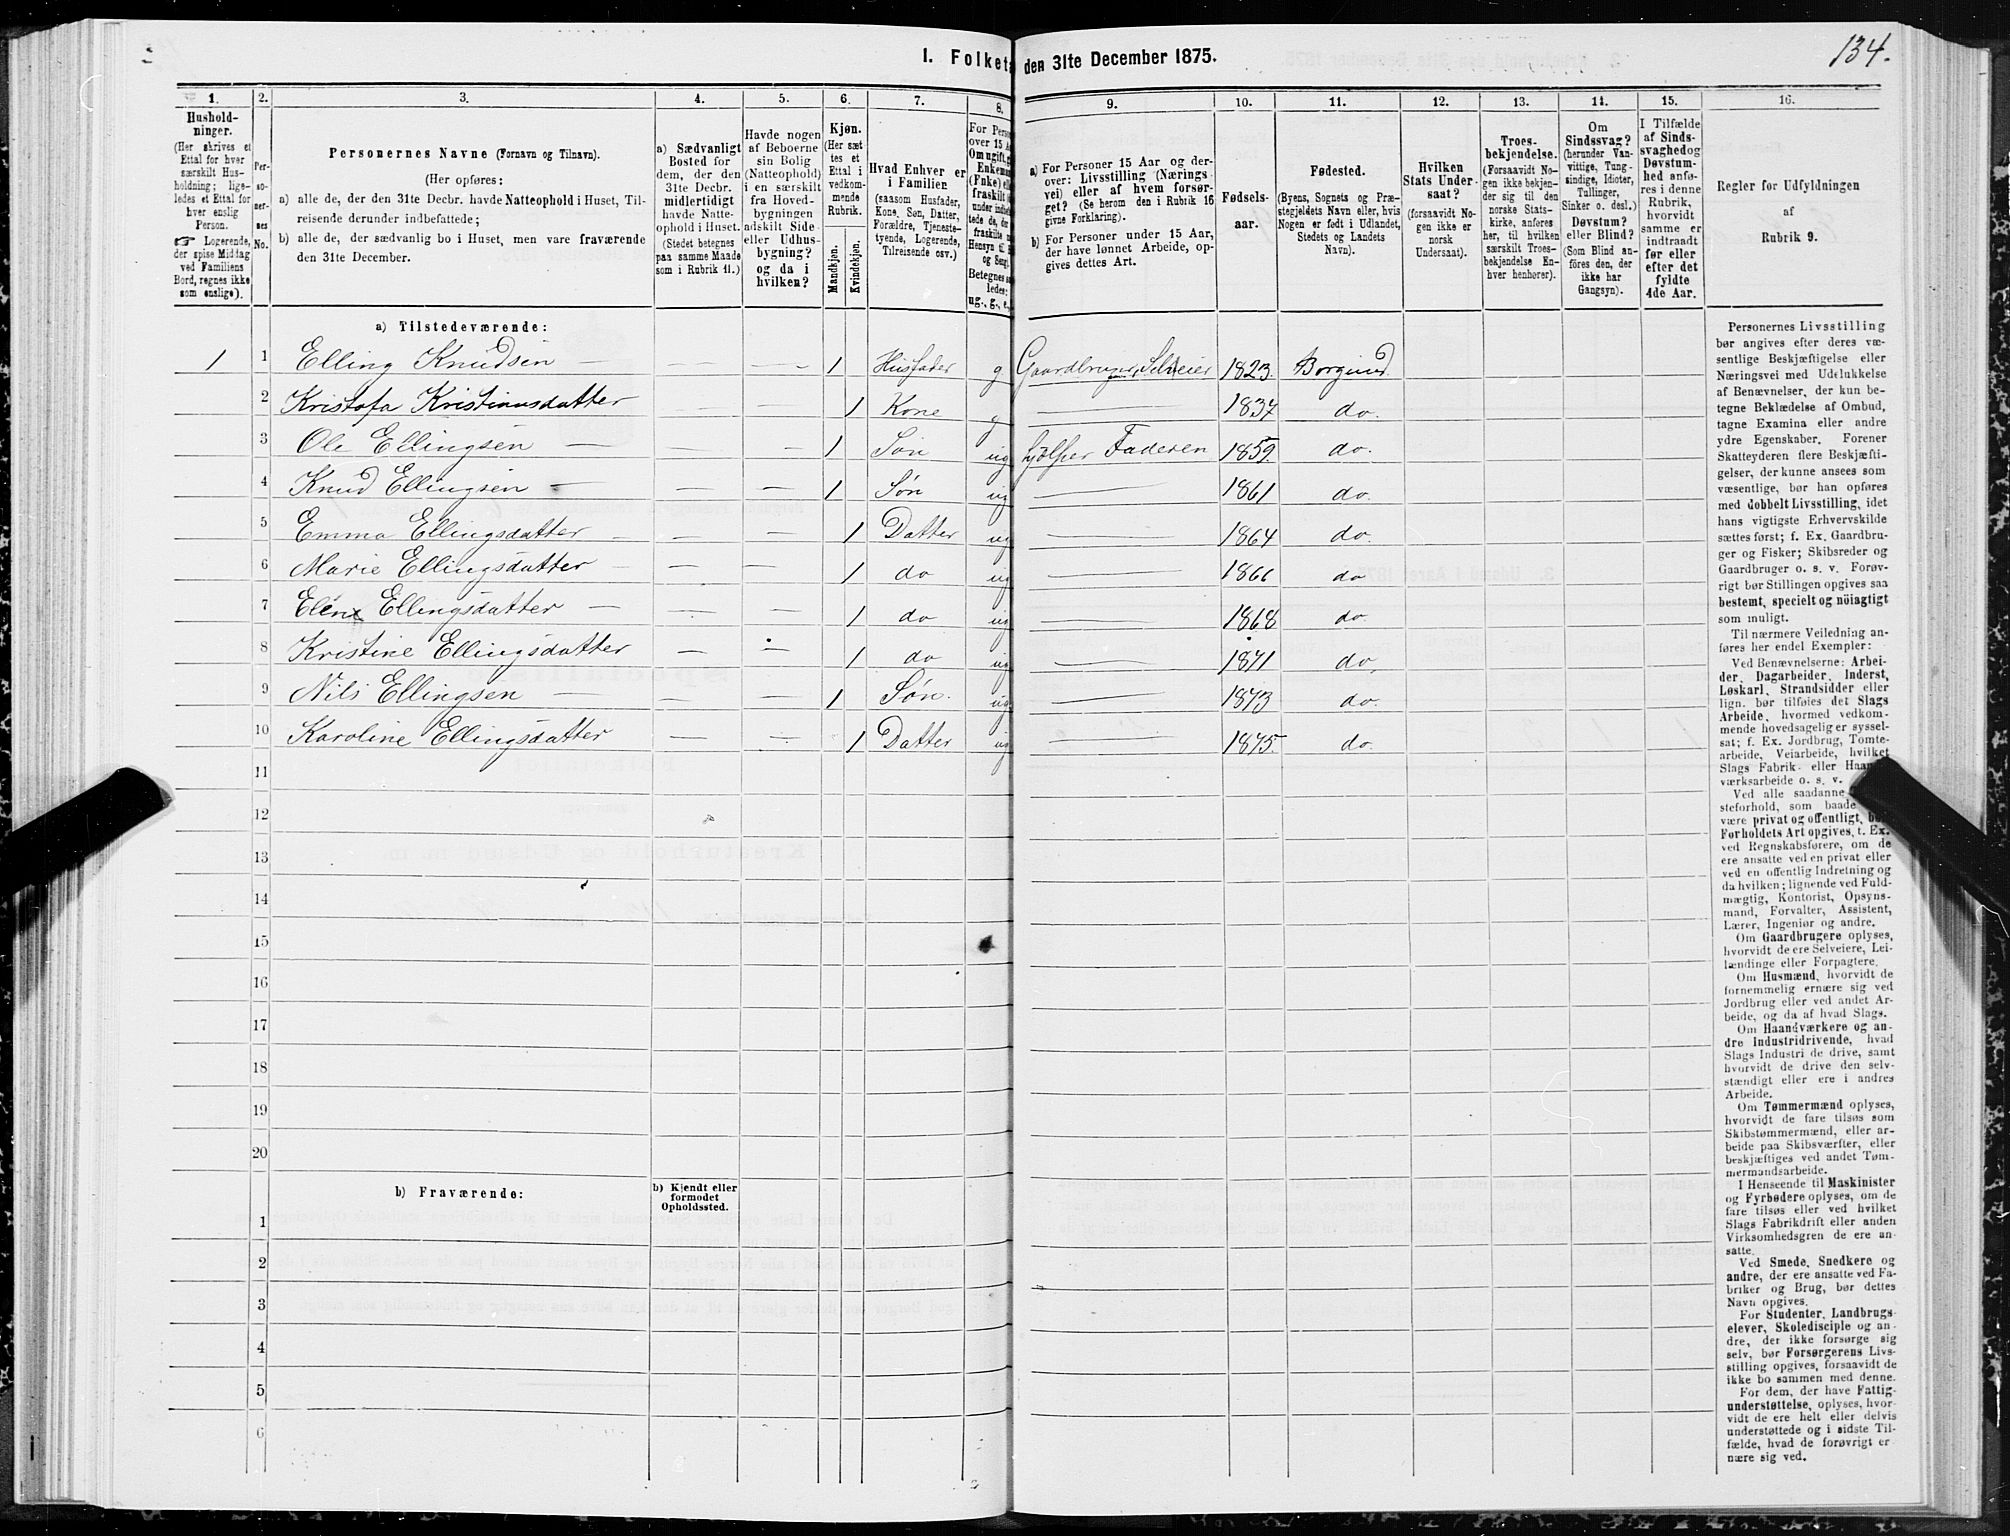 I. Folketa den 31te December 1875.
134.
1. 2. 3. 4. 5. 6. 7. 8. 9. 10. 11. 12. 13. 14. 15. 16.
Husholdninger.
(Her skrives et
Ettal for hver
særskilt Husholdning; ligeledes
et Ettal for
hver enslig
Person.
☞ Logerende,
der spise Middag
ved Familiens
Bord, regnes ikke
som enslige).
Personernes
No.
Personernes Navne (Fornavn og Tilnavn).
(Her opføres:
a) alle de, der den 31te Decbr. havde Natteophold i Huset, Tilreisende
derunder indbefattede;
b) alle de, der sædvanlig bo i Huset, men vare fraværende
den 31te December.
a) Sædvanligt
Bosted for
dem, der den
31te Decbr.
midlertidigt
havde Natteophold
i Huset.
(Stedet betegnes
paa samme Maade
som i Rubrik 11.)
Havde nogen
af Beboerne
sin Bolig
(Natteophold)
i en særskilt
fra Hovedbygningen
adskilt Side-
eller Udhusbygning?
og da i
hvilken?
Kjøn.
(Her sættes
et
Ettal i
vedkommende
Rubrik.
Mandkjøn.
Kvindekjøn.
Hvad Enhver er
i Familien
(saasom Husfader,
Kone, Søn, Datter,
Forældre, Tjenestetyende,
Logerende,
Tilreisende osv.)
a) For Personer 15 Aar og derover:
Livsstilling (Næringsvei)
eller af hvem forsørget?
(Se herom den i Rubrik 16
givne Forklaring).
b) For Personer under 15 Aar,
der have lønnet Arbeide, opgives
dettes Art.
Fødselsaar.
Fødested.
(Byens, Sognets og Præstegjeldets
Navn eller, hvis
Nogen er født i Udlandet,
Stedets og Landets
Navn).
Hvilken
Stats Undersaat?
(forsaavidt Nogen
ikke er
norsk
Undersaat).
Troesbekjendelse.
(Forsaavidt Nogen
ikke bekjender
sig til den
norske Statskirke,
anføres
her, til hvilken
særskilt Troesbekjendelse
Enhver
henhører).
Om
Sindssvag?
(herunder Vanvittige,
Tungsindige,
Idioter,
Tullinger,
Sinker o. desl.)
Døvstum?
eller Blind?
(Som Blind anføres
den, der
ikke har
Gangsyn).
I Tilfælde
af Sindssvaghed
og
Døvstumhed
anføres
i denne
Rubrik,
hvorvidt
samme er
indtraadt
før eller
efter det
fyldte
4de Aar.
Regler for Udfyldningen
af
Rubrik 9.
a) Tilstedeværende:
1 1 Elling Knudsen — — — 1 Husfader g Gaardbruger, Selveier 1823. Borgund.
2 Kristofa Kristiansdatter — — 1 Kone g — 1837 do.
3 Ole Ellingsen — — — 1 Søn ug hjælper Faderen 1859. do.
4 Knud Ellingsen — — — 1 Søn ug — 1861 do.
5 Emma Ellingsdatter — — — 1 Datter ug — 1864 do.
6 Marie Ellingsdatter — — — 1 do ug — 1866 do
7 Eline Ellingsdatter — — — 1 do ug — 1868 do
8 Kristine Ellingsdatter — — 1 do ug — 1871 do,
9 Nils Ellingsen — — — 1 Søn. ug — 1873 do.
10 Karoline Ellingsdatter — — 1 Datter ug — 1875. do.
11
12
13
14
15
16
17
18
19
20
b) Fraværende:
b) Kjendt eller
formodet
Opholdssted.
1
2
3
4
5
6
Personernes Livsstilling
bør angives efter deres væsentlige
Beskjæftigelse eller
Næringsvei med Udelukkelse
af Benævnelser, der kun betegne
Beklædelse af Ombud,
tagne Examina eller andre
ydre Egenskaber. Forener
Skatteyderen flere Beskjæftigelser,
der kunne ansees som
væsentlige, bør han opføres
med dobbelt Livsstilling, idet
hans vigtigste Erhvervskilde
sættes først; f. Ex. Gaardbruger
og Fisker; Skibsreder og
Gaardbruger o. s. v. Forøvrigt
bør Stillingen opgives saa
bestemt, specielt og nøiagtigt
som muligt.
Til nærmere Veiledning anføres
her endel Exempler:
Ved Benævnelserne: Arbeider,
Dagarbeider, Inderst,
Løskarl, Strandsidder eller
lign. bør tilføies det Slags
Arbeide, hvormed vedkommende
hovedsagelig er sysselsat;
f. Ex. Jordbrug, Tømtearbeide,
Veiarbeide, hvilket
Slags Fabrik- eller Haandværksarbeide
o. s. v.
Ved alle saadanne
steforhold, som baade
være privat og offentligt, bør
Forholdets Art opgives, t. Ex.
ved Regnskabsførere, om de
ere ansatte ved en privat eller
ved en offentlig Indretning og
da hvilken; lignende ved Fuldmægtig,
Kontorist, Opsynsmand,
Forvalter, Assistent,
Lærer, Ingeniør og andre.
Om Gaardbrugere oplyses,
hvorvidt de ere Selveiere, Leilændinge
eller Forpagtere.
Om Husmænd, hvorvidt de
fornemmelig ernære sig ved
Jordbrug eller ved andet Arbeide,
og da af hvad Slags.
Om Haandværkere og andre
Industridrivende, hvad
Slags Industri de drive, samt
hvorvidt de drive den selvstændigt
eller ere i andres
Arbeide.
Om Tømmermænd oplyses,
hvorvidt de fare tilsøs som
Skibstømmermænd, eller arbeide
paa Skibsværfter, eller
beskjæftiges ved andet Tømmermandsarbeide.
I Henseende til Maskinister
og Fyrbødere oplyses, om de
fare tilsøs eller ved hvilket
Slags Fabrikdrift eller anden
Virksomhedsgren de ere ansatte.
Ved Smede, Snedkere og
andre, der ere ansatte ved Fabriker
og Brug, bør dettes
Navn opgives.
For Studenter, Landbrugselever,
Skoledisciple og andre,
der ikke forsørge sig
selv, bør Forsørgerens Livsstilling
opgives, forsaavidt de
ikke bo sammen med denne.
For dem, der have Fattigunderstøttelse,
oplyses, hvorvidt
de ere helt eller delvis
understøttede og i sidste Tilfælde,
hvad de forøvrigt ernære
sig ved.